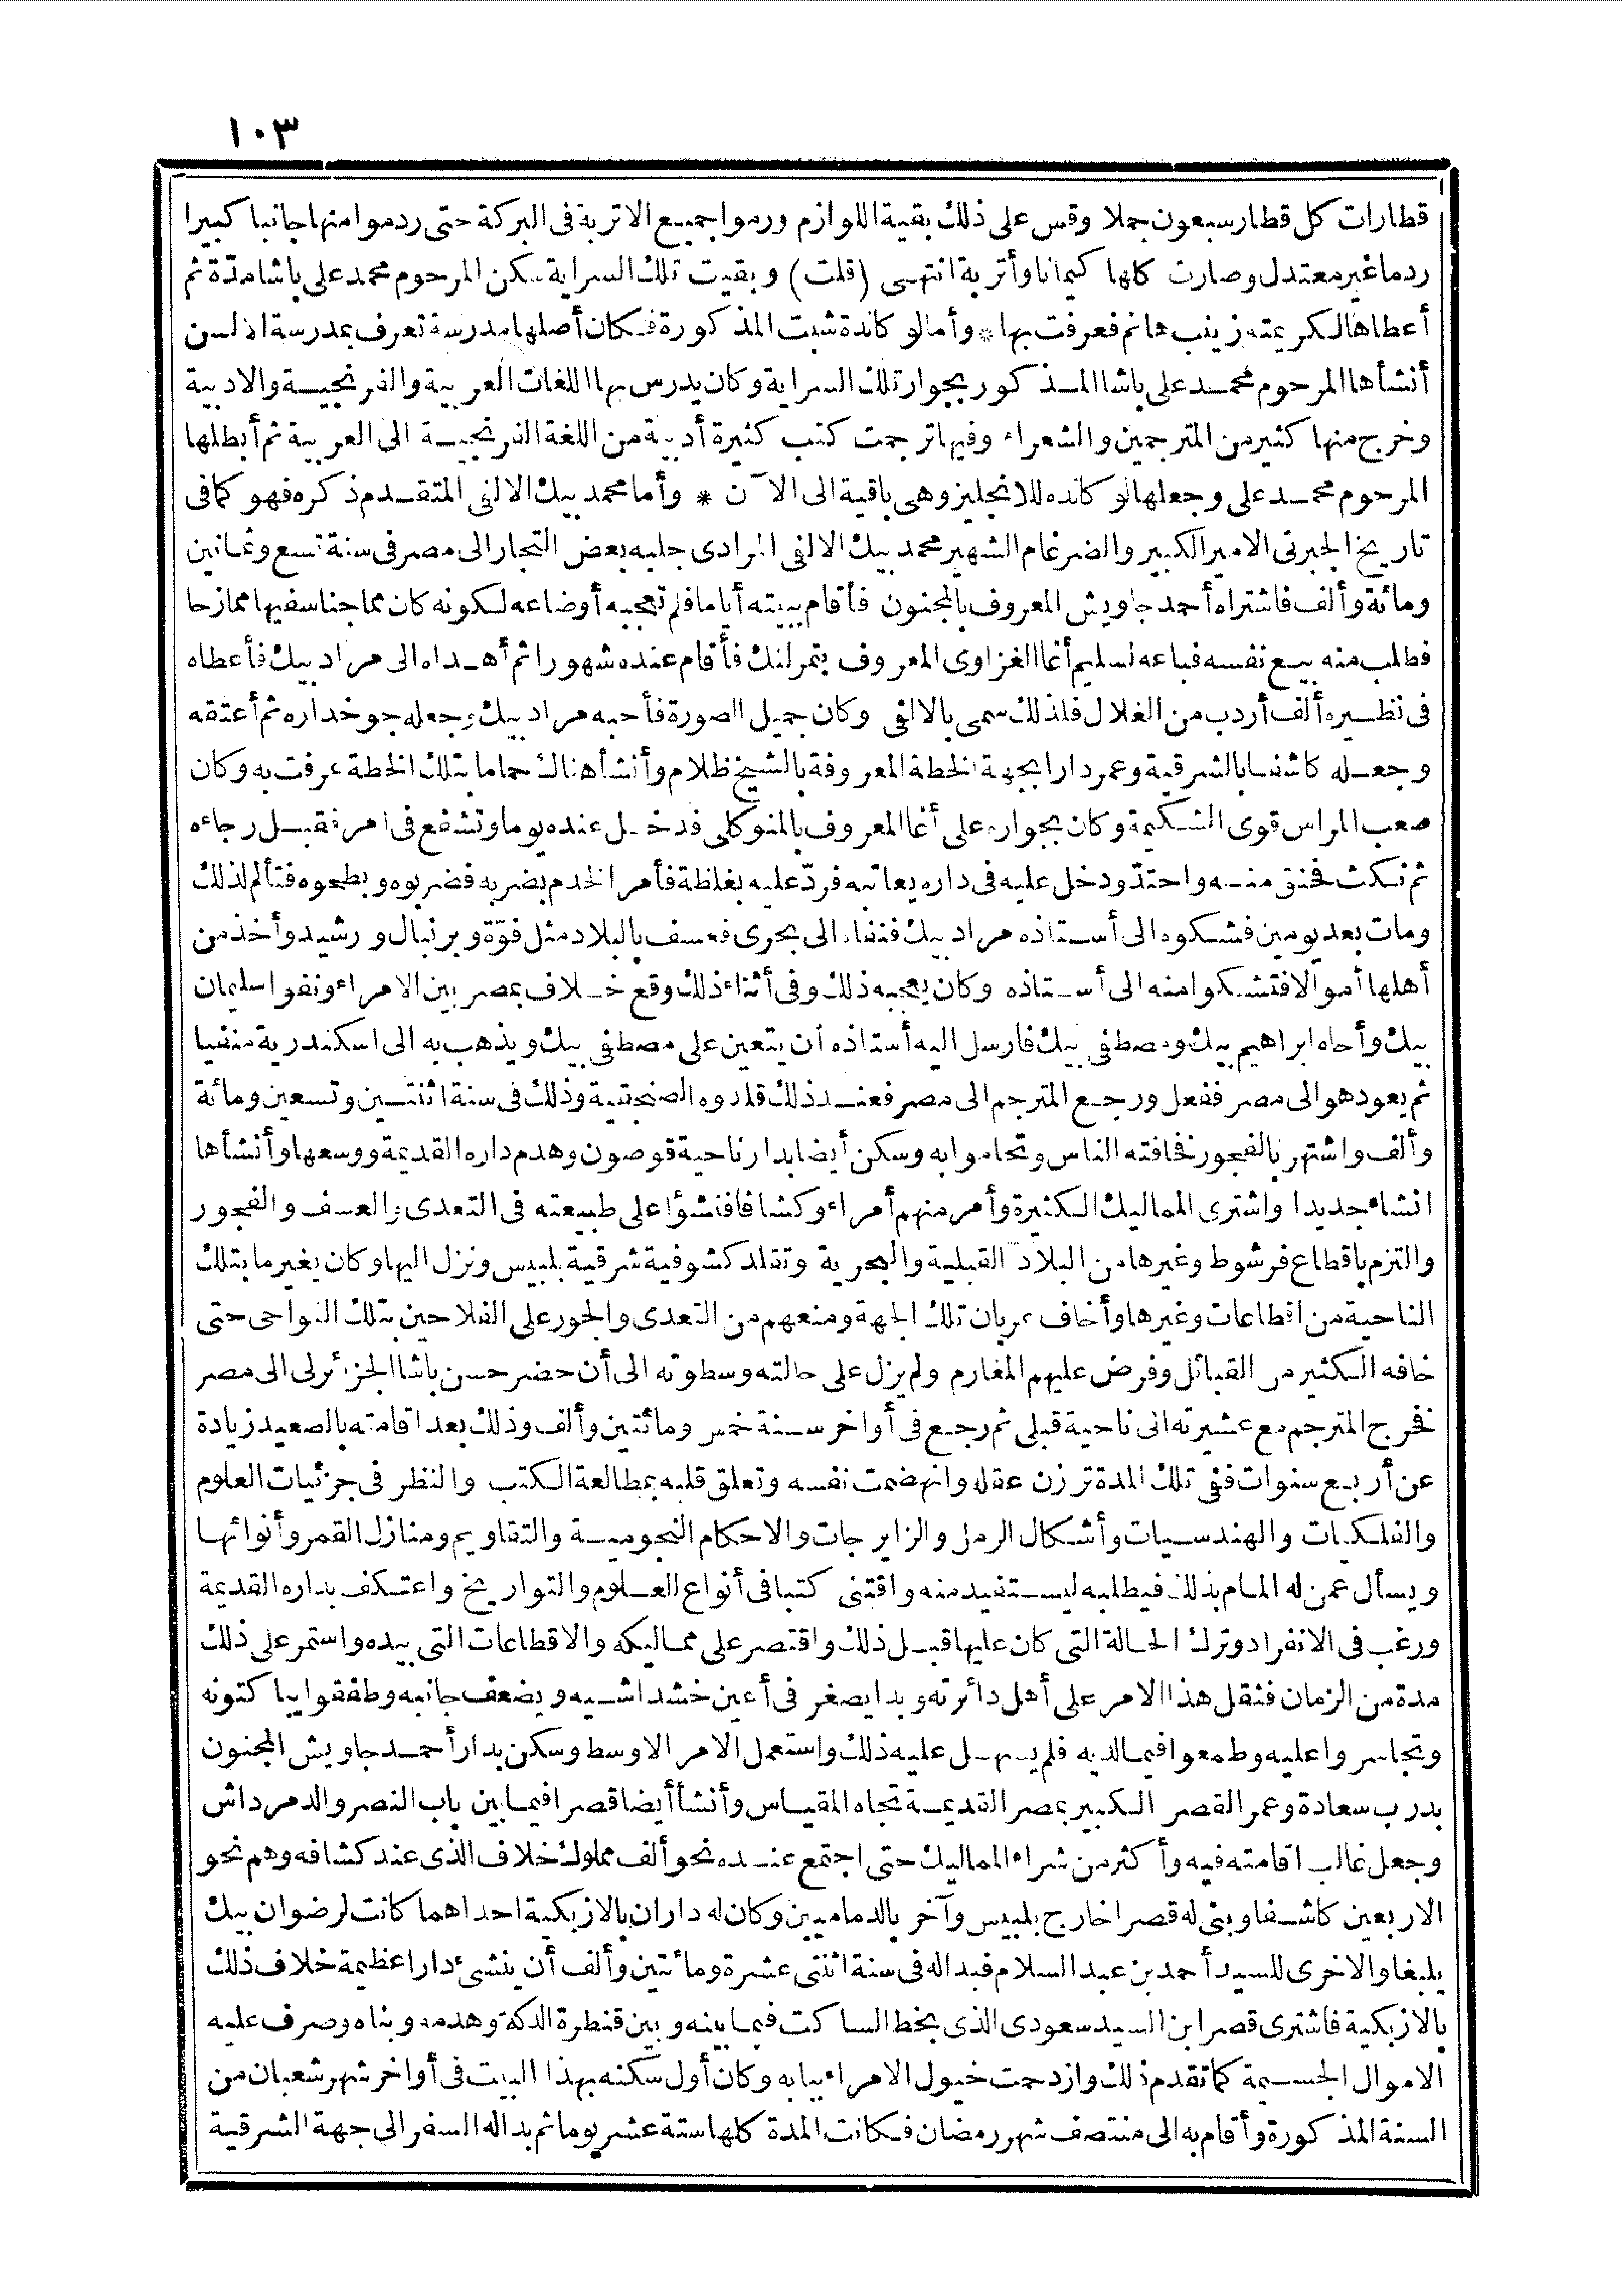 ١٠٣
قطارات كل قطار سبعون جملا وقس على ذلك بقية اللوازم ورموا جميع الاتربة فى البركة حتى ردموا منها جانبا كبيرا
ردما غير معتدل وصارت كلها كيمانا وأتربة انتهى (قلت) وبقيت تلك السراية سكن المرحوم محمد على باشا مدّة ثم
أعطاها لكريمته زينب هانم فعرفت بها * وأما لوكاندة شبت المذكورة فكان أصلها مدرسة تعرف بمدرسة الالسن
أنشأها المرحوم محمد على باشا المذكور بجوار تلك السراية وكان يدرس بها اللغات العربية والفرنجية والادبية
وخرج منها كثير من المترجمين والشعراء وفيها ترجمت كتب كثيرة أدبية من اللغة الفرنجية الى العربية ثم أبطلها
المرحوم محمد على وجعلها لوكانده للانجليز وهى باقية الى الآن * وأما محمد بيك الالفى المتقدم ذكره فهو كما فى
تاريخ الجبرتى الامير الكبير والضرغام الشهير محمد بيك الالفى المرادى جلبه بعض التجار الى مصر فى سنة تسع وثمانين
ومائة وألف فاشتراه أحمد جاويش المعروف بالمجنون فأقام ببيته أياما فلم تعجبه أوضاعه لكونه كان مماجنا سفيها ممازحا
فطلب منه بيع نفسه فباعه لسليم أغا الغزاوى المعروف بتمرلنك فأقام عنده شهورا ثم أهداه الى مراد بيك فأعطاه
فى نظيره ألف أردب من الغلال فلذلك سمى بالالفى وكان جميل الصورة فأحبه مراد بيك وجعله جوخداره ثم أعتقه
وجعله كاشفا بالشرقية وعمر دارا بجهة الخطة المعروفة بالشيخ ظلام وأنشأ هناك حماما بتلك الخطة عرفت به وكان
صعب المراس قوى الشكيمة وكان بجواره على أغا المعروف بالمتوكلى فدخل عنده يوما وتشفع فى أمر فقبل رجاءه
ثم نكث فحنق منه واحتدّ ودخل عليه فى داره يعاتبه فردّ عليه بغلظة فأمر الخدم بضربه فضربوه وبطحوه فتألم لذلك
ومات بعد يومين فشكوه الى أستاذه مراد بيك فنفاه الى بحرى فعسف بالبلاد مثل فوّة وبرنبال ورشيد وأخذ من
أهلها أموالا فتشكوا منه الى أستاذه وكان يعجبه ذلك وفى أثناء ذلك وقع خلاف بمصر بين الامراء ونفوا سليمان
بيك وأخاه ابراهيم بيك ومصطفى بيك فارسل اليه أستاذه أن يتعين على مصطفى بيك ويذهب به الى اسكندرية منفيا
ثم يعود هو الى مصر ففعل ورجع المترجم الى مصر فعند ذلك قلدوه الصنجقية وذلك فى سنة اثنتين وتسعين ومائة
وألف واشتهر بالفجور فخافته الناس وتحاموا به وسكن أيضا بدار ناحية قوصون وهدم داره القديمة ووسعها وأنشأها
انشاء جديدا واشترى المماليك الكثيرة وأمر منهم أمراء وكشافا فنشؤا على طبيعته فى التعدى والعسف والفجور
والتزم باقطاع فرشوط وغيرها من البلاد القبلية والبحرية وتقلد كشوفية شرقية بلبيس ونزل اليها وكان يغير ما بتلك
الناحية من اقطاعات وغيرها وأخاف عربان تلك الجهة ومنعهم من التعدى والجور على الفلاحين بتلك النواحى حتى
خافه الكثير من القبائل وفرض عليهم المغارم ولم يزل على حالته وسطوته الى أن حضر حسن باشا الجزائرلى الى مصر
فخرج المترجم مع عشيرته الى ناحية قبلى ثم رجع فى أواخر سنة خمس ومائتين وألف وذلك بعد اقامته بالصعيد زيادة
عن أربع سنوات ففى تلك المدة ترزن عقله وانهضمت نفسه وتعلق قلبه بمطالعة الكتب والنظر فى جزئيات العلوم
والفلكيات والهندسيات وأشكال الرمل والزايرجات والاحكام النجومية والتقاويم ومنازل القمر وأنوائها
ويسأل عمن له المام بذلك فيطلبه ليستفيد منه واقتنى كتبا فى أنواع العلوم والتواريخ واعتكف بداره القديمة
ورغب فى الانفراد وترك الحالة التى كان عليها قبل ذلك واقتصر على مماليكه والاقطاعات التى بيده واستمر على ذلك
مدة من الزمان فثقل هذا الامر على أهل دائرته وبدا يصغر فى أعين خشداشيه ويضعف جانبه وطفقوا يباكتونه
وتجاسروا عليه وطمعوا فيما لديه فلم يسهل عليه ذلك واستعمل الامر الاوسط وسكن بدار أحمد جاويش المجنون
بدرب سعادة وعمر القصر الكبير بمصر القديمة تجاه المقياس وأنشأ أيضا قصرا فيما بين باب النصر والدمرداش
وجعل غالب اقامته فيه وأكثر من شراء المماليك حتى اجتمع عنده نحو ألف مملوك خلاف الذى عند كشافه وهم نحو
الاربعين كاشفا وبنى له قصرا خارج بلبيس وآخر بالدماميين وكان له داران بالازبكية احداهما كانت لرضوان بيك
يلبغا والاخرى للسيد أحمد بن عبد السلام فبدا له فى سنة اثنتى عشرة ومائتين وألف أن ينشئ دارا عظيمة خلاف ذلك
بالازبكية فاشترى قصر ابن السيد سعودى الذى بخط الساكت فيما بينه وبين قنطرة الدكة وهدمه وبناه وصرف عليه
الاموال الجسيمة كما تقدم ذلك وازدحمت خيول الامراء ببابه وكان أول سكنه بهذا البيت فى أواخر شهر شعبان من
السنة المذكورة وأقام به الى منتصف شهر رمضان فكانت المدة كلها ستة عشر يوما ثم بدا له السفر الى جهة الشرقية